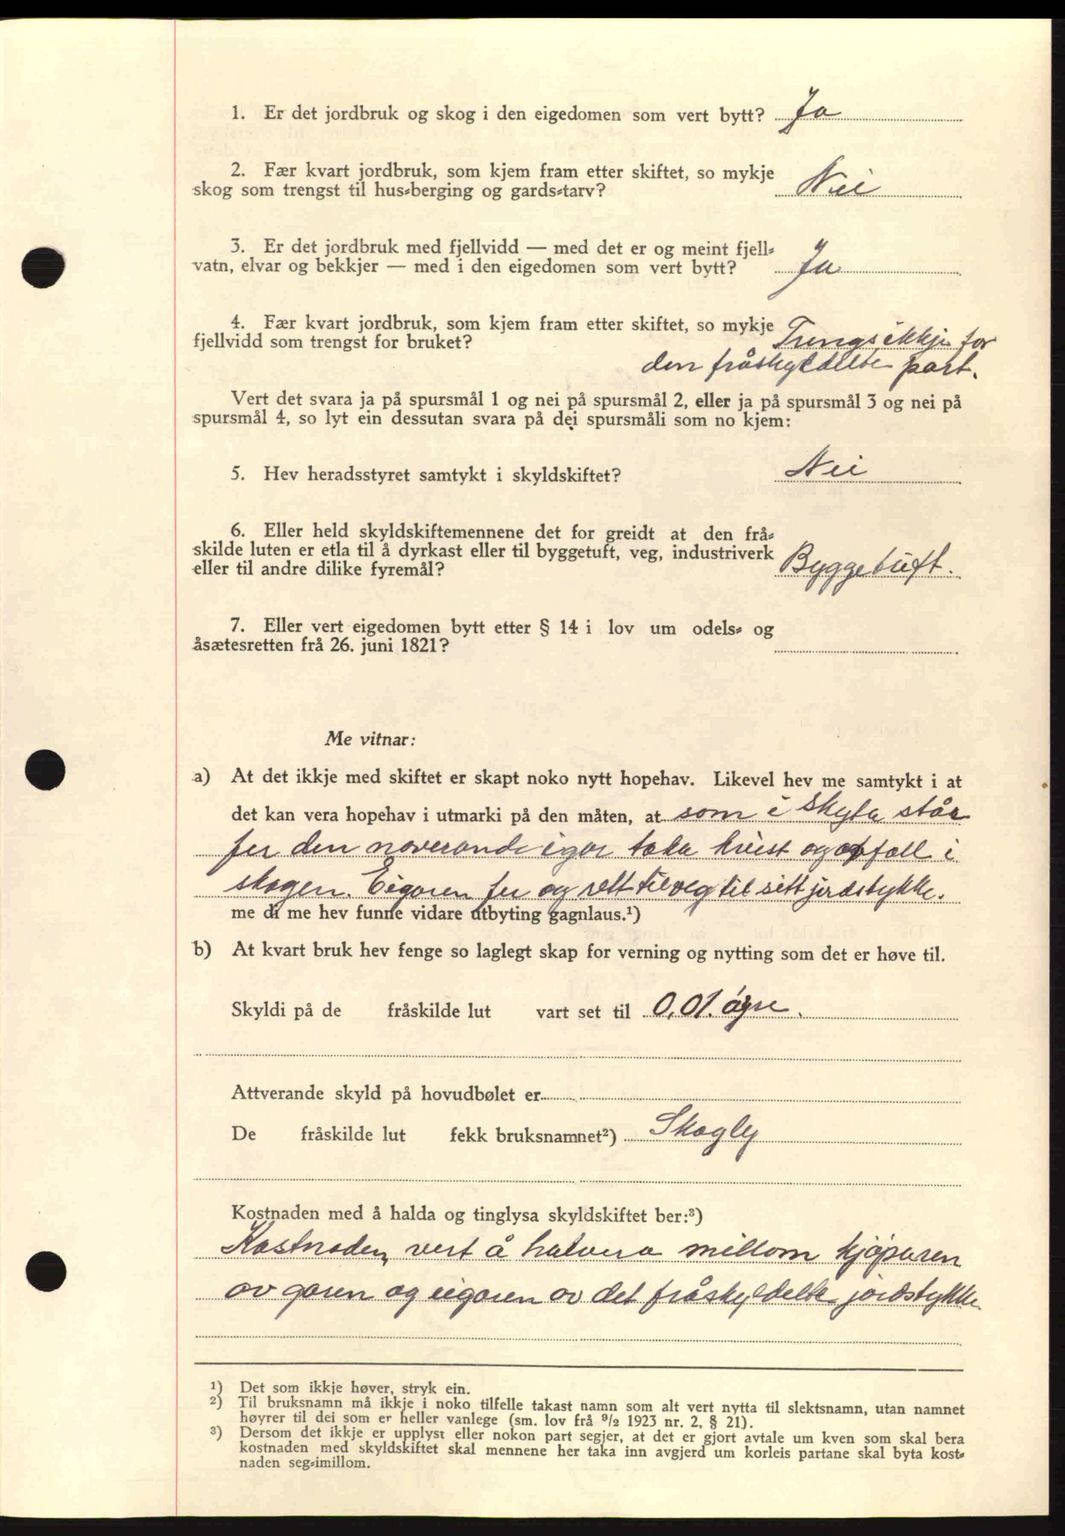 1. Er det jordbruk og skog i den eigedomen som vert bytt? Ja
2. Fær kvart jordbruk, som kjem fram etter skiftet, so mykje
skog som trengst til hus-berging og gards-tarv? Nei
3. Er det jordbruk med fjellvidd — med det er og meint fjell-
vatn, elvar og bekkjer — med i den eigedomen som vert bytt? Ja
4. Fær kvart jordbruk, som kjem fram etter skiftet, so mykje
fjellvidd som trengst for bruket? Trengs ikkje for
den fråskyldelte part.
Vert det svara ja på spursmål 1 og nei på spursmål 2, eller ja på spursmål 3 og nei på
spursmål 4, so lyt ein dessutan svara på dei spursmåli som no kjem:
5. Hev heradsstyret samtykt i skyldskiftet? Nei
6. Eller held skyldskiftemennene det for greidt at den frå-
skilde luten er etla til å dyrkast eller til byggetuft, veg, industriverk
eller til andre dilike fyremål? Byggetuft.
7. Eller vert eigedomen bytt etter § 14 i lov um odels- og
åsætesretten frå 26. juni 1821?
Me vitnar:
a) At det ikkje med skiftet er skapt noko nytt hopehav. Likevel hev me samtykt i at
det kan vera hopehav i utmarki på den måten, at som i skyta står
fer den noverande eigar taka kvist og opfall i
skogen. Eigaren fer og rett til veg til sitt jordstykke.
me di me hev funne vidare utbyting gagnlaus.¹)
b) At kvart bruk hev fenge so laglegt skap for verning og nytting som det er høve til.
Skyldi på de fråskilde lut vart set til 0,01. øyre.
Attverande skyld på hovudbølet er
De fråskilde lut fekk bruksnamnet²) Skogly
Kostnaden med å halda og tinglysa skyldskiftet ber:³)
Kostnaden vert å halvera millom kjøparen
av garen og eigaren av det fråskyldelte jordstykke
¹) Det som ikkje høver, stryk ein.
²) Til bruksnamn må ikkje i noko tilfelle takast namn som alt vert nytta til slektsnamn, utan namnet
høyrer til dei som er heller vanlege (sm. lov frå 9/2 1923 nr. 2, § 21).
³) Dersom det ikkje er upplyst eller nokon part segjer, at det er gjort avtale um kven som skal bera
kostnaden med skyldskiftet skal mennene her taka inn avgjerd um korleis partane skal byta kost-
naden seg-imillom.